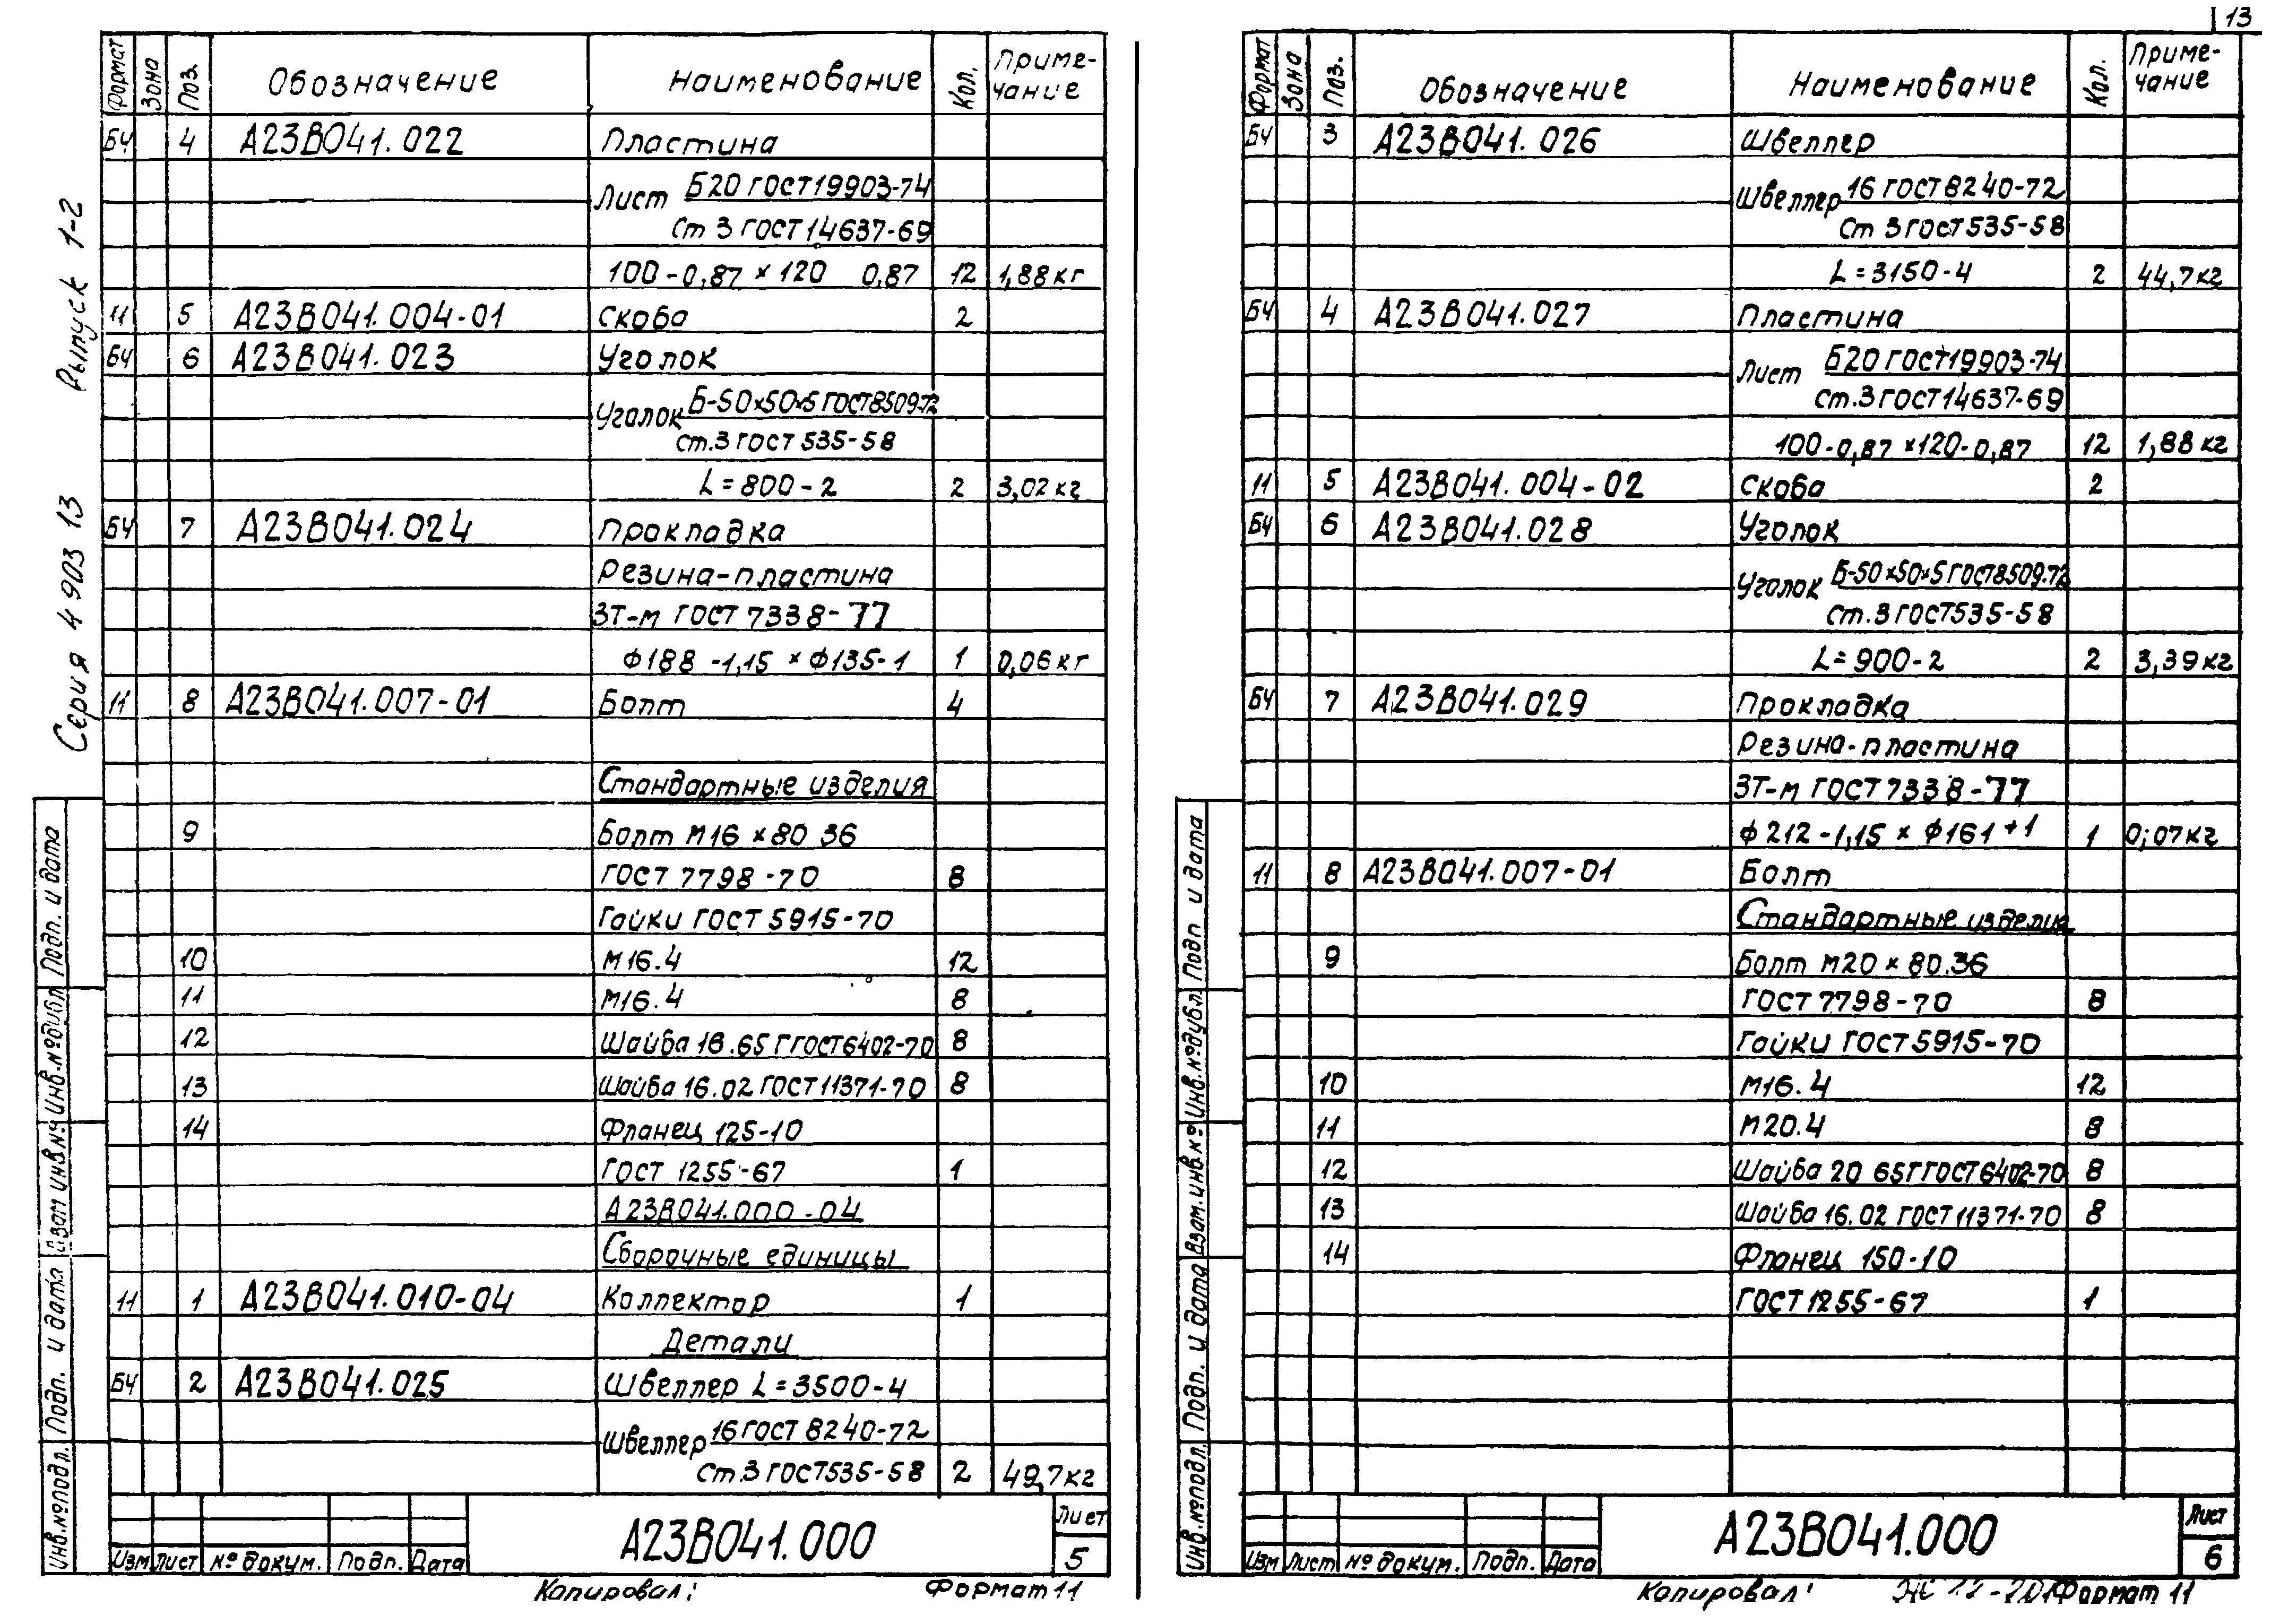 13
Серия 4 903 13 Выпуск 1-2
Формат Зона Поз. Обозначение Наименование Кол. Приме-
чание
БЧ 4 А23В041.022 Пластина
Лист Б20 ГОСТ19903-74
Ст 3 ГОСТ14637-69
100-0,87 × 120 0,87 12 1,88кг
11 5 А23В041.004-01 Скоба 2
БЧ 6 А23В041.023 Уголок
Уголок Б-50×50×5 ГОСТ8509-72
ст.3 ГОСТ 535-58
L=800-2 2 3,02кг
БЧ 7 А23В041.024 Прокладка
Резина-пластина
3Т-м ГОСТ 7338-77
ф188-1,15 × ф135-1 1 0,06кг
11 8 А23В041.007-01 Болт 4
Стандартные изделия
9 Болт М16×80 36
ГОСТ 7798-70 8
Гайки ГОСТ 5915-70
10 М16.4 12
11 М16.4 8
12 Шайба 16.65Г ГОСТ6402-70 8
13 Шайба 16.02 ГОСТ11371-70 8
14 Фланец 125-10
ГОСТ 1255-67 1
А23В041.000-04
Сборочные единицы
11 1 А23В041.010-04 Коллектор 1
Детали
БЧ 2 А23В041.025 Швеллер L=3500-4
Швеллер 16 ГОСТ 8240-72
Ст.3 ГОСТ535-58 2 49,7кг
Инв.№подл. Подп. и дата Взам инв.№ Инв.№дубл Подп. и дата
Изм Лист № докум. Подп. Дата
А23В041.000
Лист
5
Копировал: Формат 11
Формат Зона Поз. Обозначение Наименование Кол. Приме-
чание
БЧ 3 А23В041.026 Швеллер
Швеллер 16 ГОСТ8240-72
Ст 3 ГОСТ535-58
L=3150-4 2 44,7кг
БЧ 4 А23В041.027 Пластина
Лист Б20 ГОСТ19903-74
ст.3 ГОСТ14637-69
100-0,87 ×120-0,87 12 1,88кг
11 5 А23В041.004-02 Скоба 2
БЧ 6 А23В041.028 Уголок
Уголок Б-50×50×5 ГОСТ8509-72
ст.3 ГОСТ535-58
L=900-2 2 3,39кг
БЧ 7 А23В041.029 Прокладка
Резина-пластина
3Т-м ГОСТ 7338-77
ф212-1,15 × ф161+1 1 0,07кг
11 8 А23В041.007-01 Болт
Стандартные изделия
9 Болт М20×80.36
ГОСТ 7798-70 8
Гайки ГОСТ5915-70
10 М16.4 12
11 М20.4 8
12 Шайба 20 65Г ГОСТ6402-70 8
13 Шайба 16.02 ГОСТ11371-70 8
14 Фланец 150-10
ГОСТ1255-67 1
Инв.№подл. Подп. и дата Взам.инв.№ Инв.№дубл. Подп и дата
Изм Лист № докум. Подп. Дата
А23В041.000
Лист
6
Копировал: Формат 11